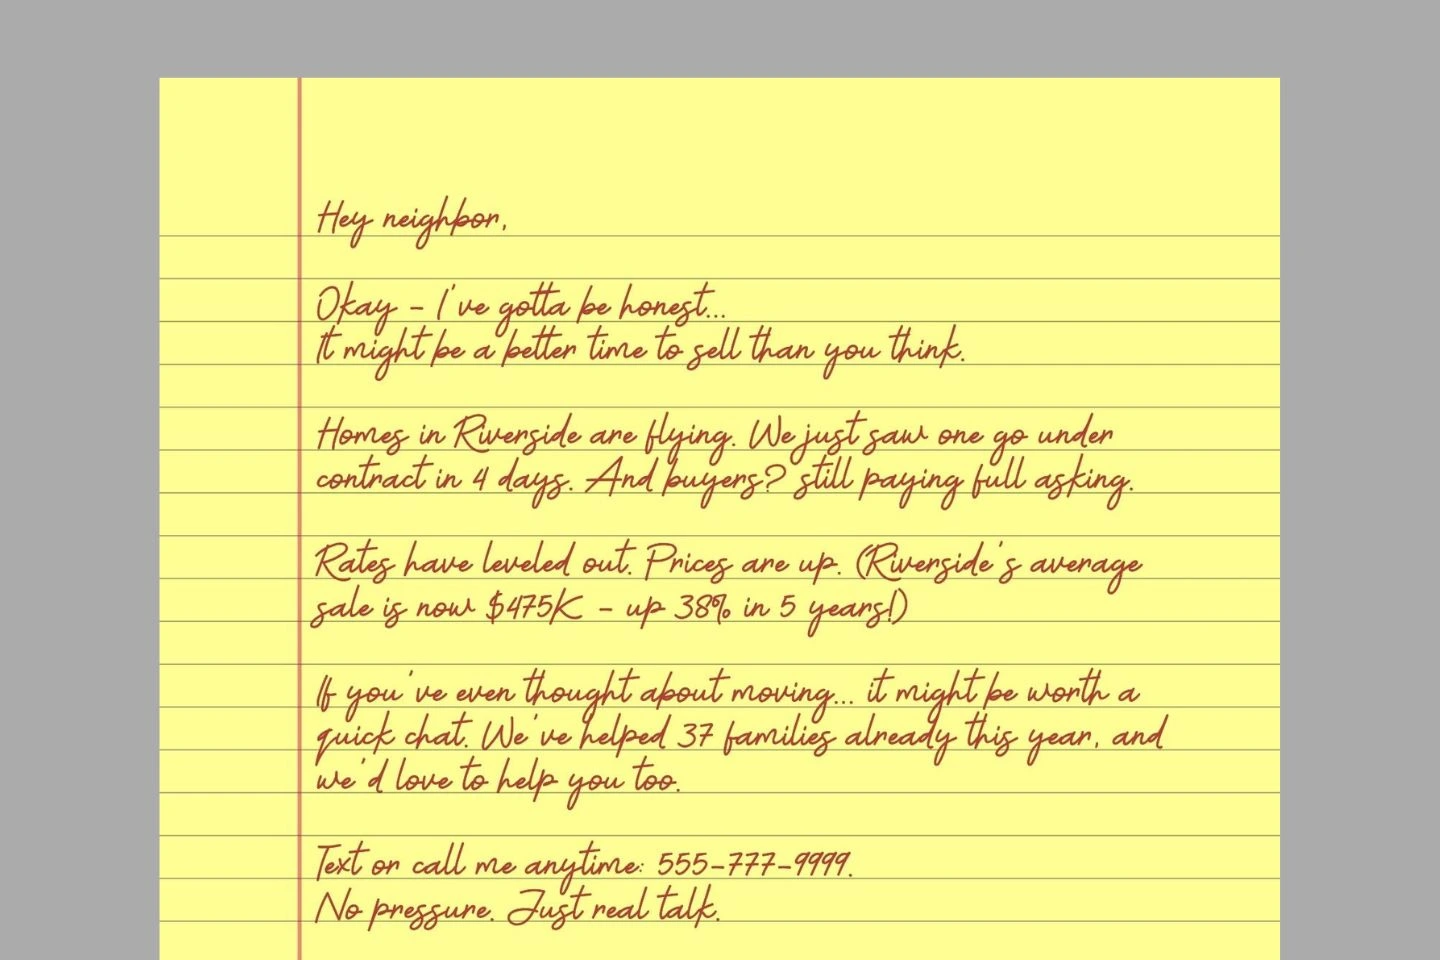 Hey neighbor,
Okay - I've gotta be honest...
It might be a better time to sell than you think.
Homes in Riverside are flying. We just saw one go under
contract in 4 days. And buyers? still paying full asking.
Rates have leveled out. Prices are up. (Riverside's average
sale is now $475K - up 38% in 5 years!)
If you've even thought about moving... it might be worth a
quick chat. We've helped 37 families already this year, and
we'd love to help you too.
Text or call me anytime: 555-777-9999.
No pressure. Just real talk.